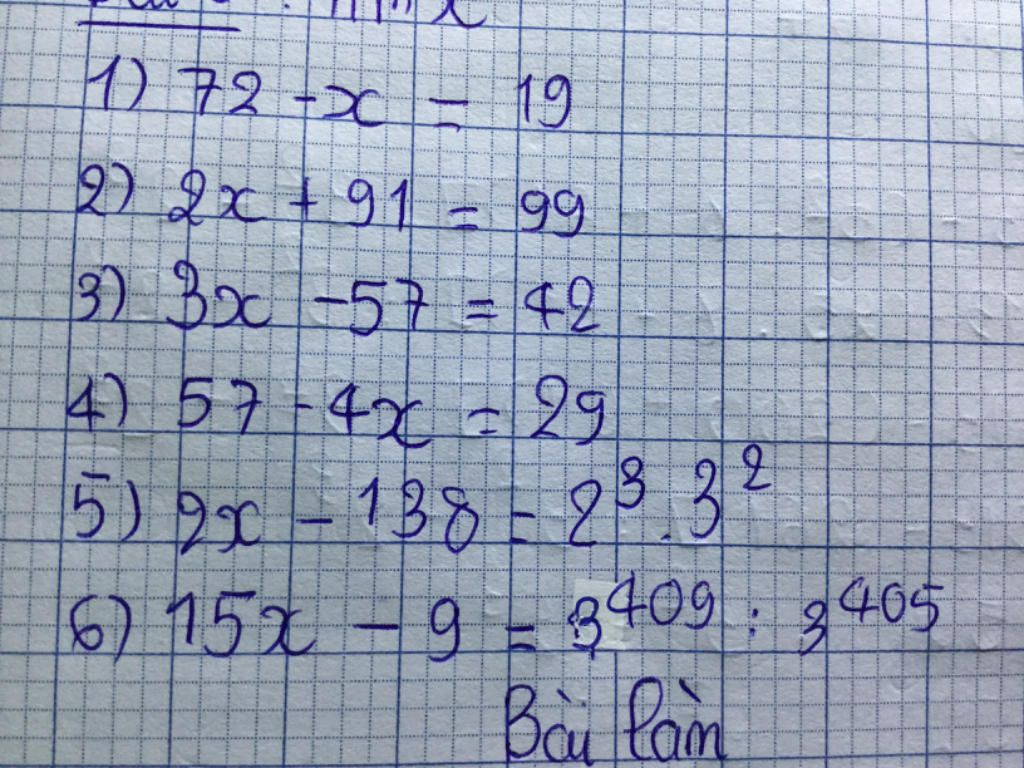 x
1) 72 - x = 19
2) 2x + 91 = 99
3) 3x - 57 = 42
4) 57 - 4x = 29
5) 2x - 138 = 2³ . 3²
6) 15x - 9 = 3⁴⁰⁹ : 3⁴⁰⁵
Bài làm